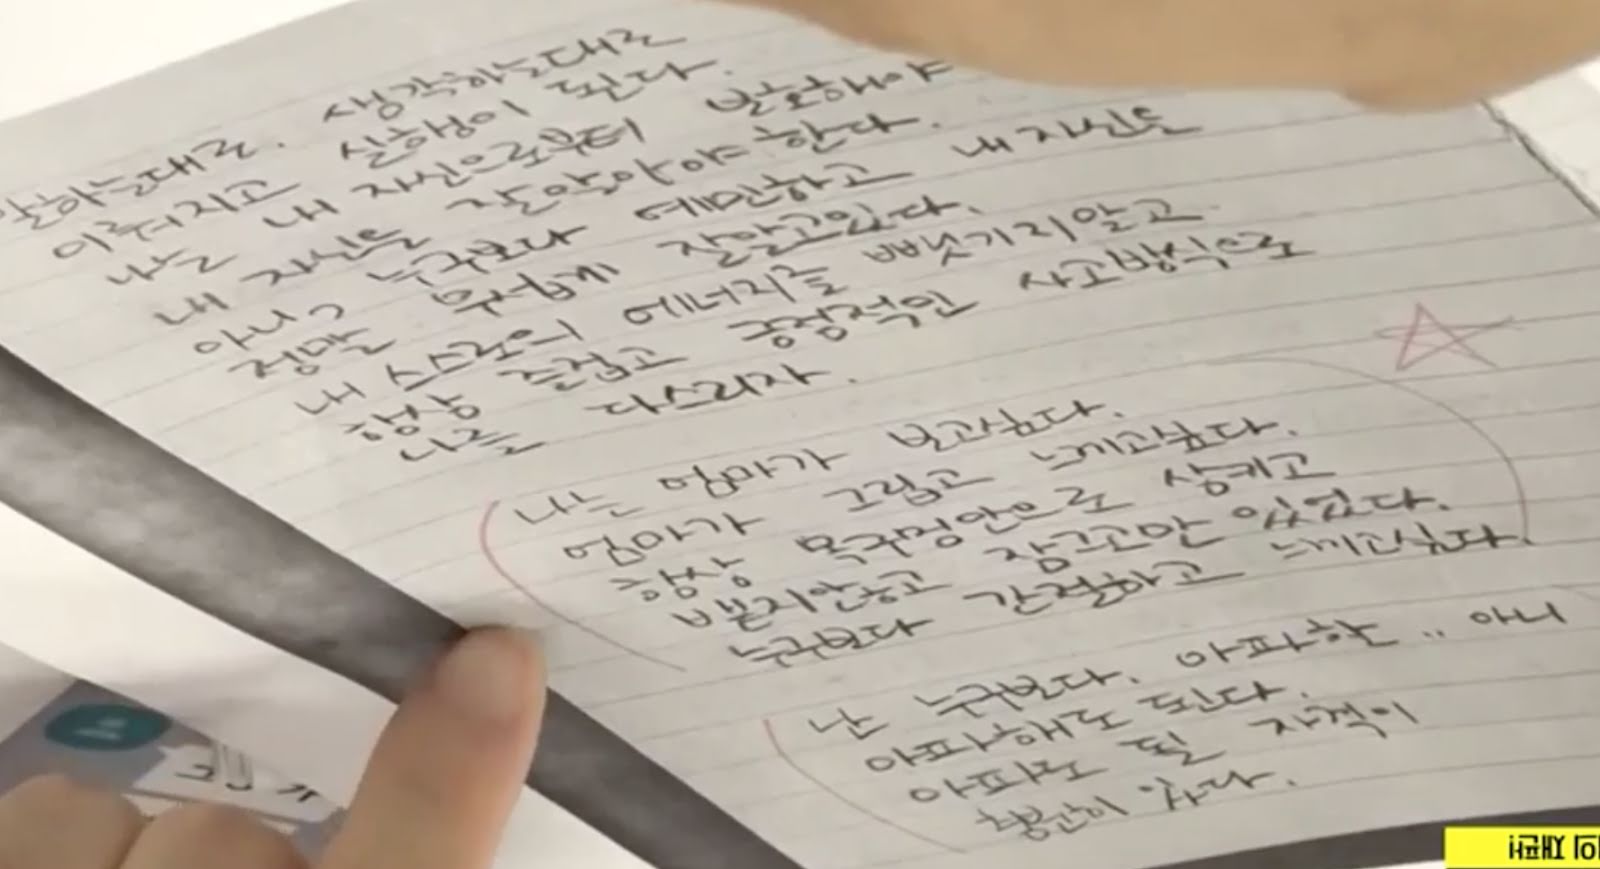 말하는대로. 생각하는대로
이뤄지고 실행이 된다.
나는 내 자신으로부터 발효해야
내 자신은 잘 알아야 한다.
아니? 누구보다 예민하고 내 자신은
정말 무섭게 잘알고있다.
내 스스로의 에너지를 뺏기지않고
항상 즐겁고 긍정적인 사고방식으로
나를 다스리자.
나는 엄마가 보고싶다.
엄마가 그립고 느끼고싶다.
항상 목구멍안으로 삼키고
뱉지않하고 잠그고만 있었다.
누구보다 간절하고 느끼고싶다.
난 누구보다. 아파한.. 아니
아파해도 된다.
아파도 될 자격이
충분히 있다.